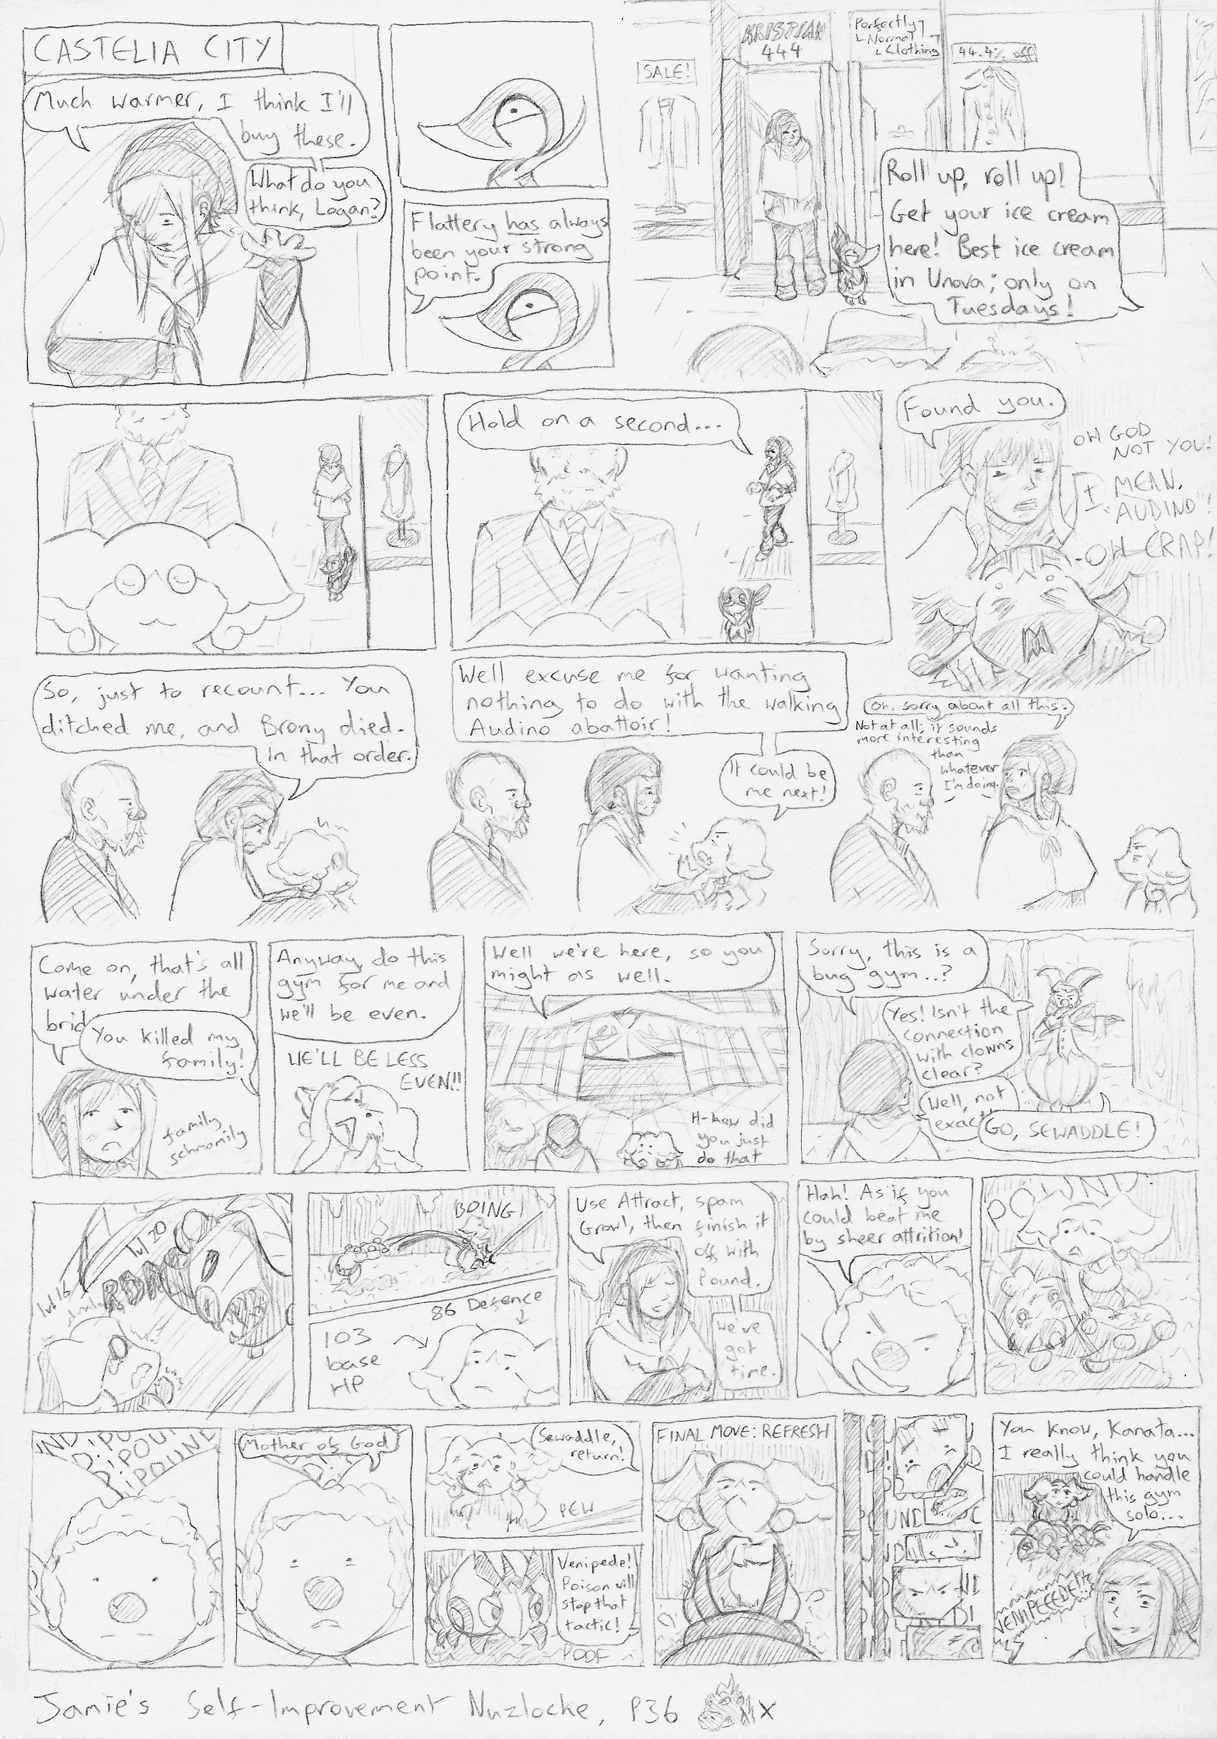 CASTELIA CITY
Much warmer, I think I'll
buy these.
What do you
think, Logan?
Flattery has always
been your strong
point.
KRISTIAN
444
Perfectly
Normal
Clothing
SALE!
44.4% off
Roll up, roll up!
Get your ice cream
here! Best ice cream
in Unova; only on
Tuesdays!
Hold on a second...
Found you.
OH GOD
NOT YOU!
I MEAN,
"AUDINO"!
OH CRAP!
So, just to recount... You
ditched me, and Brony died.
In that order.
Well excuse me for wanting
nothing to do with the walking
Audino abattoir!
It could be
me next!
Oh, sorry about all this.
Not at all; it sounds
more interesting
than
whatever
I'm doing.
Come on, that's all
water under the
brid
You killed my
family!
family,
schmamily
Anyway, do this
gym for me and
we'll be even.
WE'LL BE LESS
EVEN!!
Well we're here, so you
might as well.
H-how did
you just
do that
Sorry, this is a
bug gym..?
Yes! Isn't the
connection
with clowns
clear?
Well, not
exac
GO, SEWADDLE!
lvl 16
lvl 20
BOING!
86 Defence
103
base
HP
Use Attract, spam
Growl, then finish it
off with
Pound.
We've
got
time.
Hah! As if you
could beat me
by sheer attrition!
POUND
Mother of God
Sewaddle,
return!
PEW
Venipede!
Poison will
stop that
tactic!
POOF
FINAL MOVE: REFRESH
You know, Kanata...
I really think you
could handle
this gym
solo...
Jamie's Self-Improvement Nuzlocke, P36
x